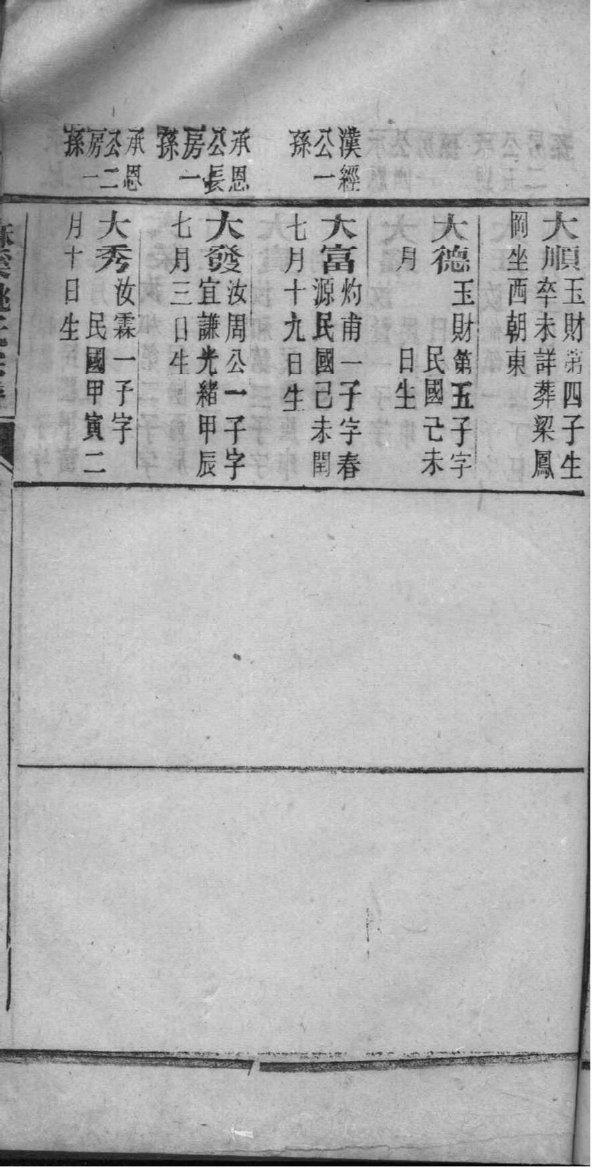 漢經
公一
孫
承恩
公長
房一
孫
承恩
公二
房一
孫
大順
玉財第四子生
卒未詳葬梁鳳
岡坐西朝東
大德
玉財第五子字
民國己未
月
日生
大富
灼甫一子字春
源民國己未閏
七月十九日生
大發
汝周公一子字
宜謙光緒甲辰
七月三日生
大秀
汝霖一子字
民國甲寅二
月十日生